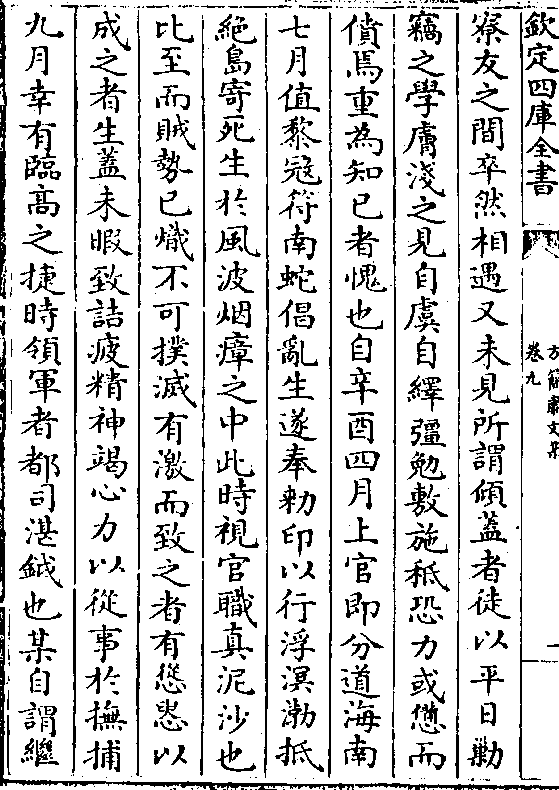 欽定四庫全書
卷九
寮友之間卒然相遇又未見所謂傾蓋者徒以平日勦
竊之學膚淺之見自虞自繹彊勉敷施秪恐力或憊而
僨焉重為知已者愧也自辛酉四月上官即分道海南
七月值黎冦符南蛇倡亂生遂奉勅印以行浮溟渤抵
絶島寄死生於風波烟瘴之中此時視官職真泥沙也
比至而賊勢已熾不可撲滅有激而致之者有慫恿以
成之者生蓋未暇致詰疲精神竭心力以從事於撫捕
九月幸有臨髙之捷時領軍者都司湛鉞也某自謂繼